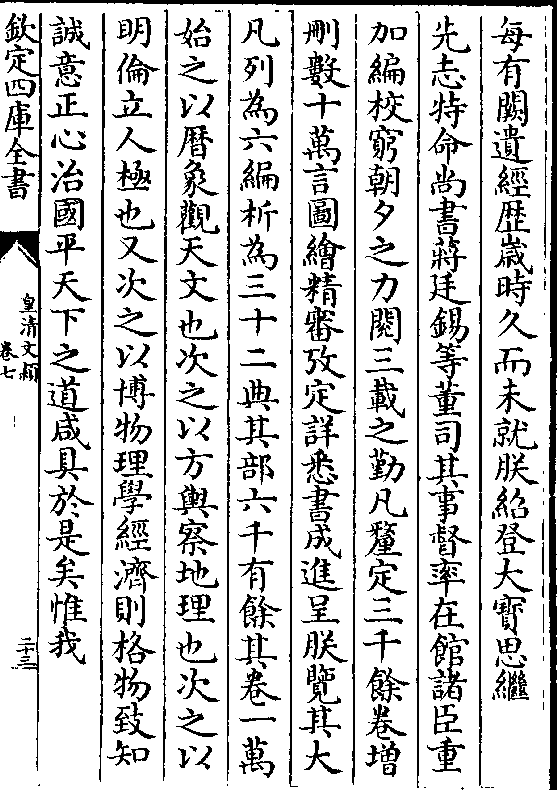 每有闕遺經歴歲時久而未就朕紹登大寳思繼
先志特命尚書蔣廷錫等董司其事督率在館諸臣重
加編校窮朝夕之力閱三載之勤凡釐定三千餘卷增
刪數十萬言圖繪精審攷定詳悉書成進呈朕覽其大
凡列為六編析為三十二典其部六千有餘其卷一萬
始之以厯象觀天文也次之以方輿察地理也次之以
明倫立人極也又次之以博物理學經濟則格物致知
誠意正心治國平天下之道咸具於是矣惟我
欽定四庫全書
皇清文頴
卷七
二十三